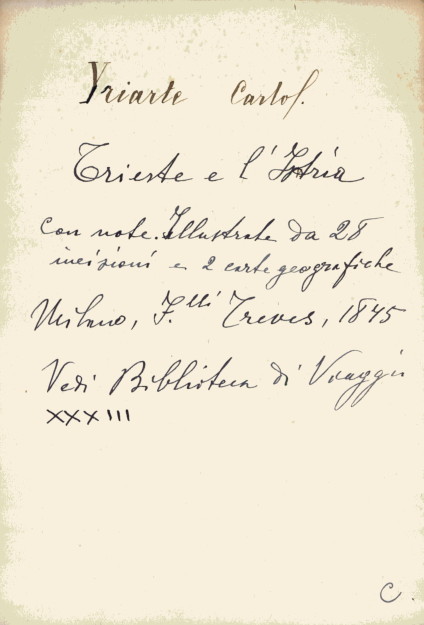 Yriarte Carlos.
Trieste e l'Istria
con note. Illustrate da 28
incisioni e 2 carte geografiche
Milano, F.lli Treves, 1875
Vedi Biblioteca di Viaggi
XXXIII
C.